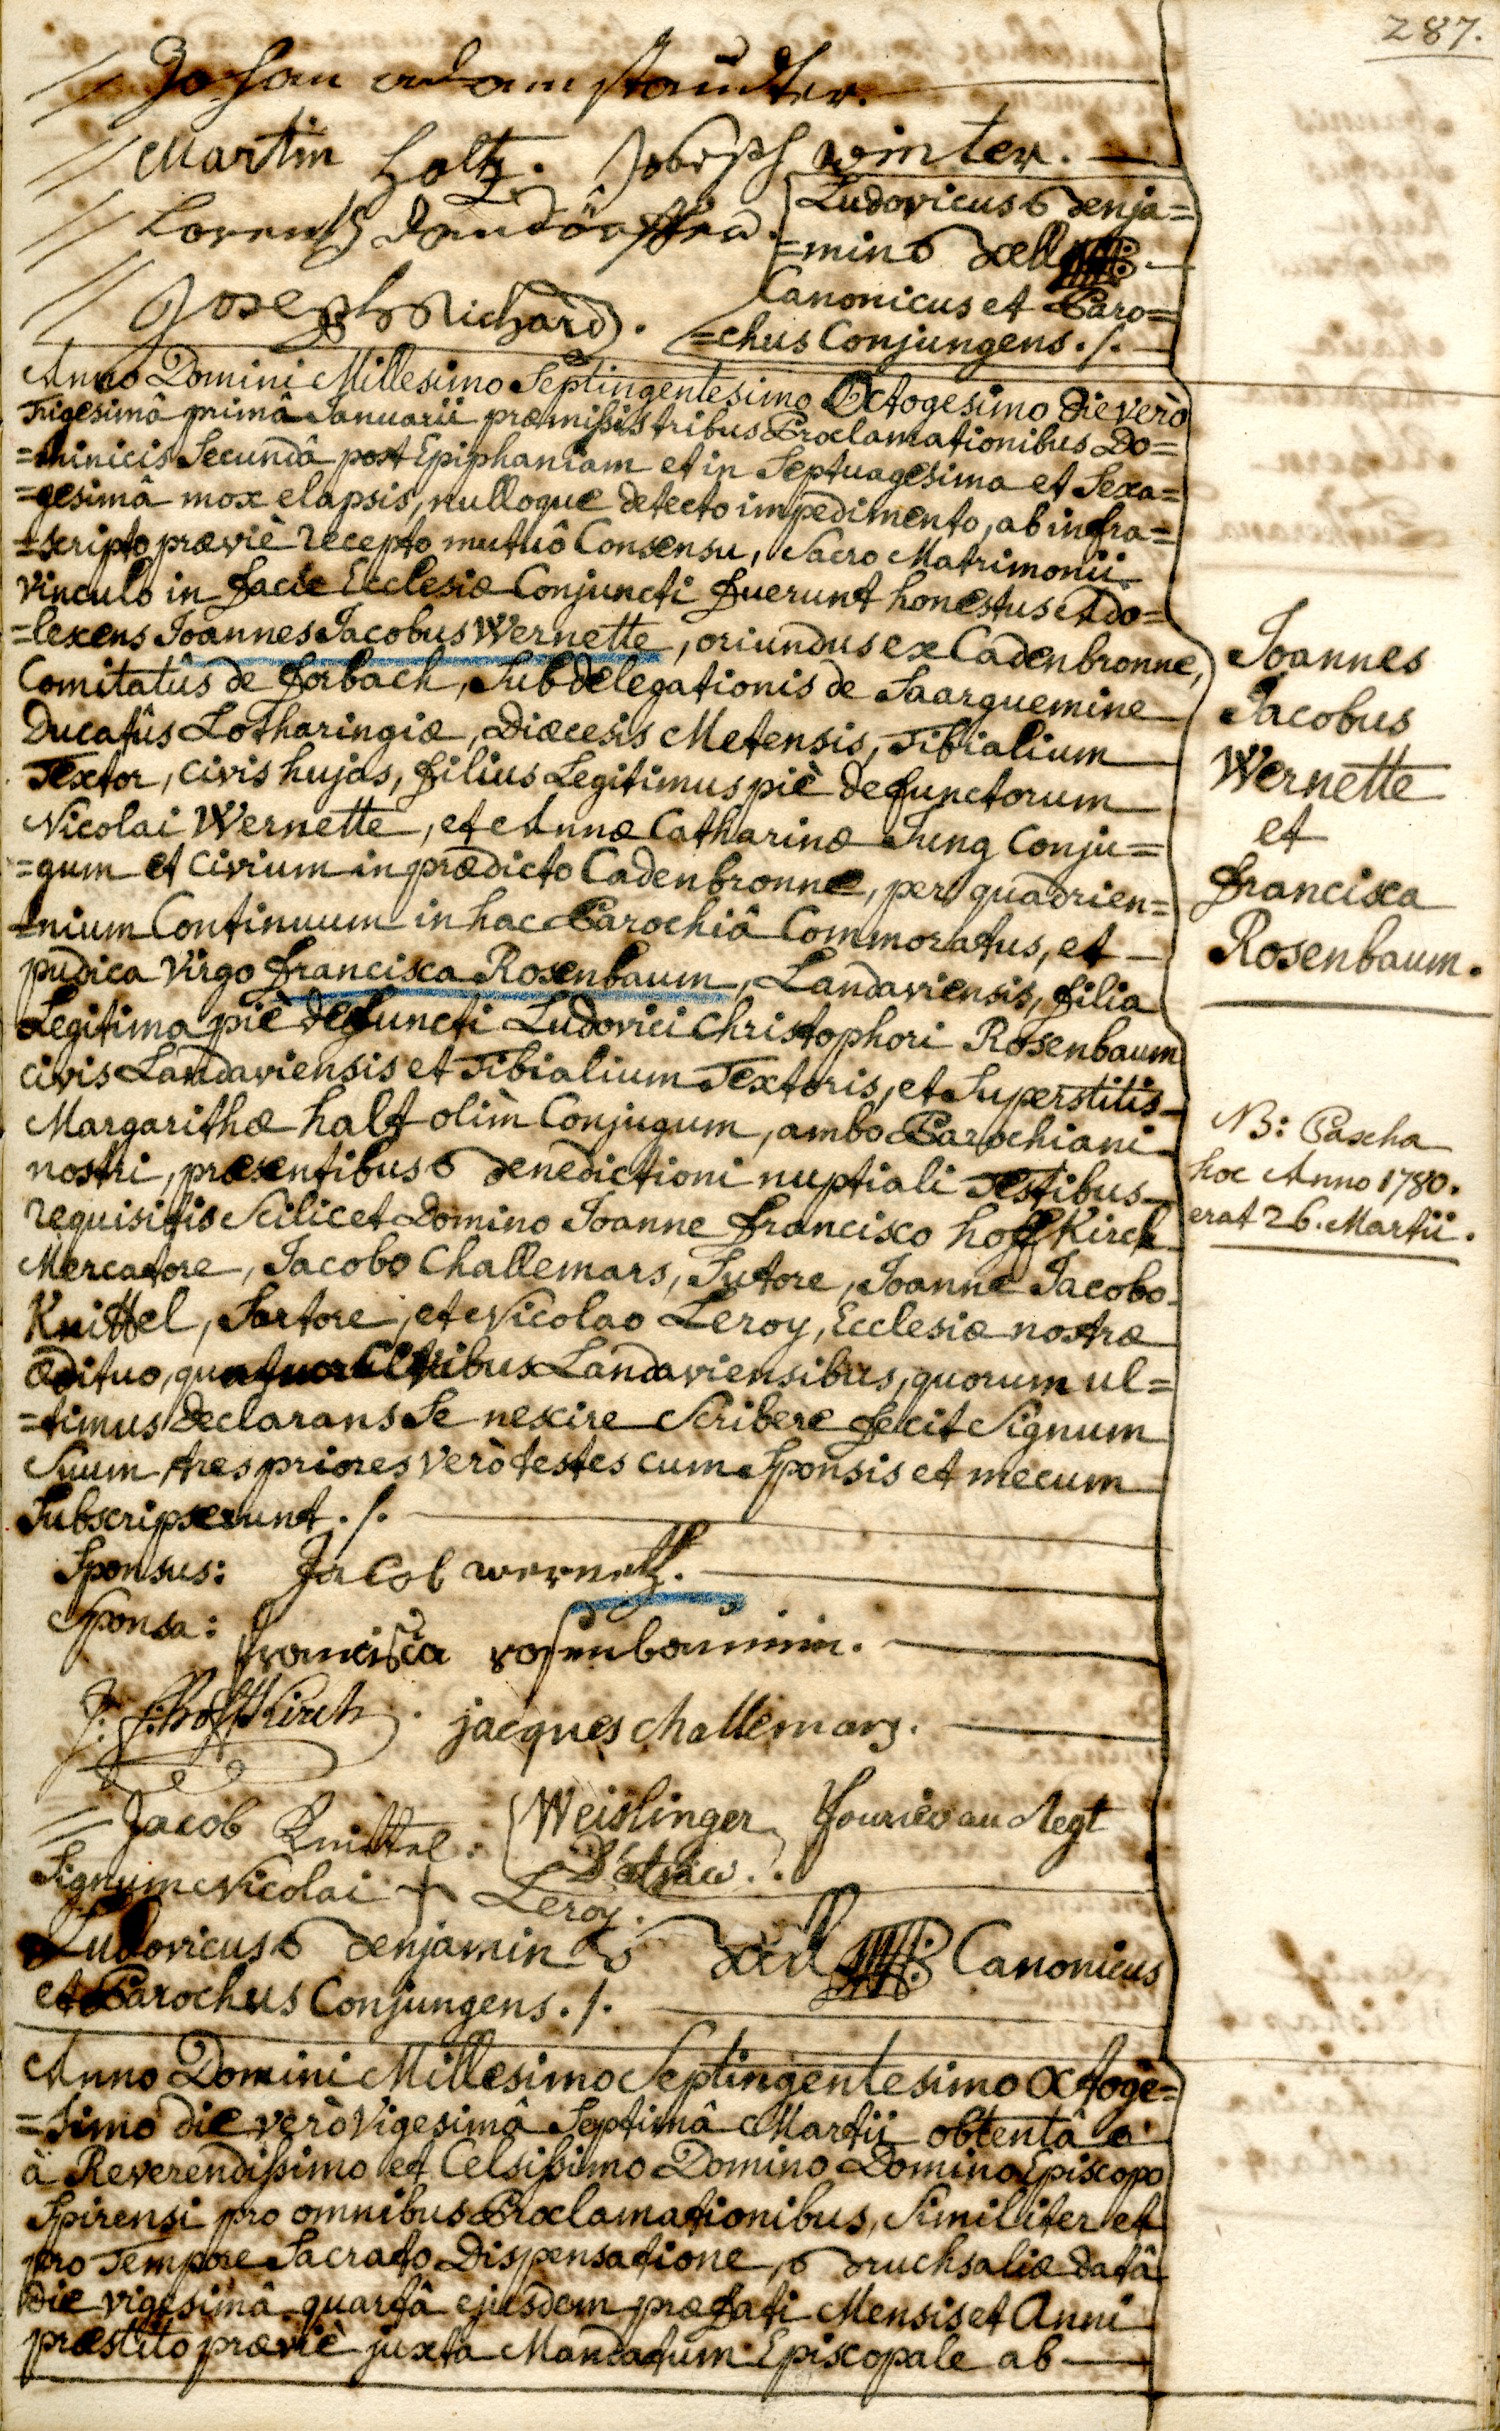 287.
Johan adam staudter.
Martin Holtz. Joseph winter.
Lorentz
Ludovicus Benja=
=min Oell
Canonicus et Paro=
=chus Conjungens ./.
Joseph Richard.
Anno Domini Millesimo Septingentesimo Octogesimo die verò
Trigesimâ primâ Januarii præmissis tribus Proclamationibus Do=
=minicis Secundâ post Epiphaniam et in Septuagesima et Sexa=
=gesimâ mox elapsis, nulloque detecto impedimento, ab infra=
=scripto præviè recepto mutuô Consensu, Sacro Matrimonii
vinculo in facie Ecclesiæ Conjuncti fuerunt honestus Ado=
=lescens Joannes Jacobus Wernette, oriundus ex Cadenbronne,
Comitatûs de forbach, Subdelegationis de Saarguemine
Ducatûs Lotharingiæ, Diœcesis Metensis, Tibialium
Textor, civis hujas, filius Legitimus piè defunctorum
Nicolai Wernette, et Annæ Catharinæ Jung Conju=
=gum et civium in prædicto Cadenbronne, per quadrien=
=nium Continuum in hac Parochiâ Commoratus, et
pudica virgo francisca Rosenbaum, Landaviensis, filia
Legitima piè defuncti Ludovici Christophori Rosenbaum
civis Landaviensis et Tibialium Textoris, et Superstitis
Margarithæ halt olìm Conjugum, ambo Parochiani
nostri, præsentibus Benedictioni nuptiali Testibus
requisitis Scilicet Domino Joanne francisco hoffKirch
Mercatore, Jacobo Challemars, Sutore, Joanne Jacobo
Knittel, Sartore, et Nicolao Leroy, Ecclesiæ nostræ
ædituo, quatuor Civibus Landaviensibus, quorum ul=
=timus declarans Se nescire Scribere fecit Signum
Suum tres priores verò testes cum Sponsis et mecum
Subscripserunt ./.
Joannes
Jacobus
Wernette
et
francisca
Rosenbaum.
NB: Pascha
hoc Anno 1780.
erat 26. Martii.
Sponsus: Jacob wernetz.
Sponsa: francisca rosenbaumin.
J. f. hoffKirch. jacques challemars.
Jacob Knittel. Weislinger fourier au Regt
Signum Nicolai + Leroy.
Ludovicus Benjamin Oell Canonicus
et Parochus Conjungens ./.
Anno Domini Millesimo Septingentesimo Octoge=
=simo die verò Vigesimâ Septimâ Martii obtentâ
à Reverendissimo et Celsissimo Domino Domino Episcopo
Spirensi pro omnibus Proclamationibus, Similiter et
pro Tempore Sacrato Dispensatione, Bruchsaliæ datâ
die vigesimâ quartâ ejusdem præfati Mensis et Anni
præstito præviè juxta Mandatum Episcopale ab